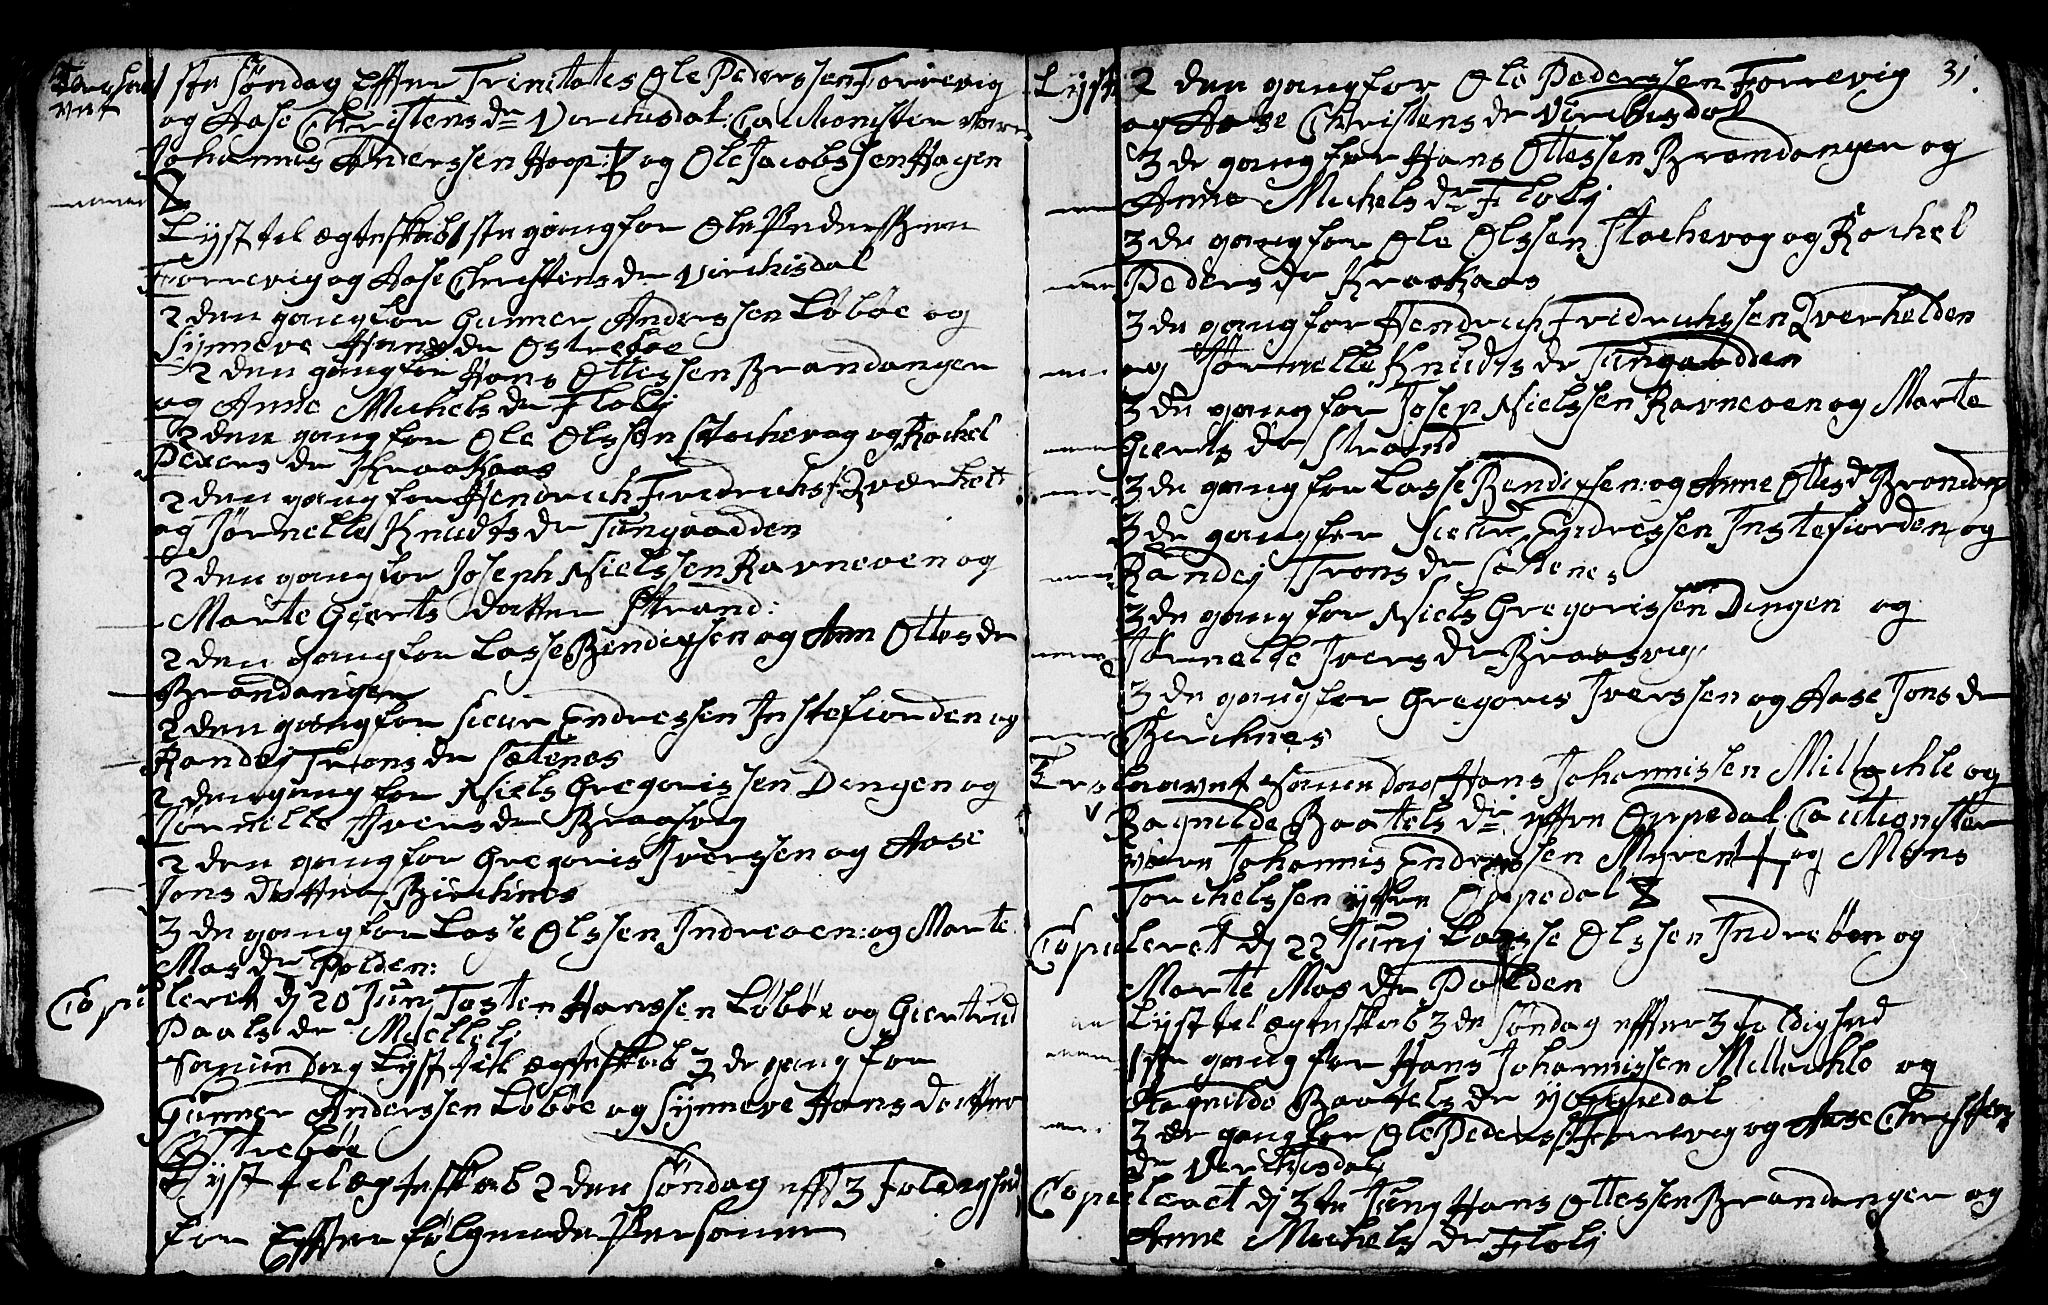 1ste Søndag effter Trinitatis Ole Pederssen Forrevig
og Aase Christens dr Virchisdal: Cautionister vare
Johannis Anderssen Hoop: og Ole Jacobssen Hagen
Lyst tel ægteskab 1ste gang for Ole Pederssen
Forrevig og Aase Christens dr Virchisdal
2 den gang for Gunner Anderssen Løbøe og
Synneve Hans dr Ostrebøe
2 den gang for Hans Ottessen Brandanger
og Anne Michels dr Floli
2 den gang for Ole Olssen Stochevog og Rachel
Peders dr Kraakaas
2 den gang for Hendrich Fridrichs:
og Jørnelle Knudts dr Tungaadden
2 den gang for Joseph Nielssen Ravneøen og
Marte Gierts datter Strand:
2 den gang for Lasse Bendixsen og Ann Ottes dr
Brandanger
2 den gang for Siur Endressen Instefiorden og
Randej Trons dr Sætenes
2 den gang for Niels Gregorissen Dingen og
Jørnille Ivers dr Braasvig
2 den gang for Gregoris Iverssen og Aase
Jons datter Birchnes
3 de gang for Lasse Olssen Indreøen: og Marte
Mas dr Polden:
Copuleret dj 20 Junj Tosten Hanssen Løbøe og Giertrud
Paals dr Møllelj
Samme Dag Lyst till ægteskab 3 de gang for
Gunner Anderssen Løbøe og Synneve Hans datter
Ostrebøe
Lyst tel ægteskab 2 den Søndag efft 3 foldighed
for Effter følgende Personer
31.
Lyst 2 den gang for Ole Pederssen Forrevig
og Aase Christens dr Virchisdal
3 de gang for Hans Ottessen Brandanger og
Anne Michels dr Floli
3 de gang for Ole Olssen Stochevog og Rachel
Peders dr Kraakaas
3 de gang for Hendrich Fridrichssen Qverhelden
og Jørnelle Knudts dr Tungaadden
3 de gang for Josep Nielssen Ravneøen og Marte
Gierts dr Strand
3 de gang for Lasse Bendixsen: og Anne Ottesd Brandang
3 de gang for Siur Endressen Instefiorden og
Randej Trons dr Setenes
3 de gang for Niels Gregorissen Dingen og
Jørnelle Ivers dr Braasvig
3 de gang for Gregoris Iverssen og Aase Jons dr
Birchnes
Trolovet samme dag Hans Johannissen Millochle og
Ragnilde Baatels dr yttre Oppedal. Cautionister
vare Johannis Endressen Myren og Mons
Torchelssen yttre Oppedal
Copuleret dj 22 Junj Lasse Olssen Indrebøen og
Marte Mas dr Polden
Lyst tel ægteskab 3 de Søndag effter 3 foldighed
1ste gang for Hans Johannissen Millochle og
Ragnilde Baatels dr y Oppedal
3 de gang for Ole Peders: Forrevig og Aase Christens
dr Virchisdal
Copuleret dj Hans Ottessen Brandanger og
Anne Michels dr Floli